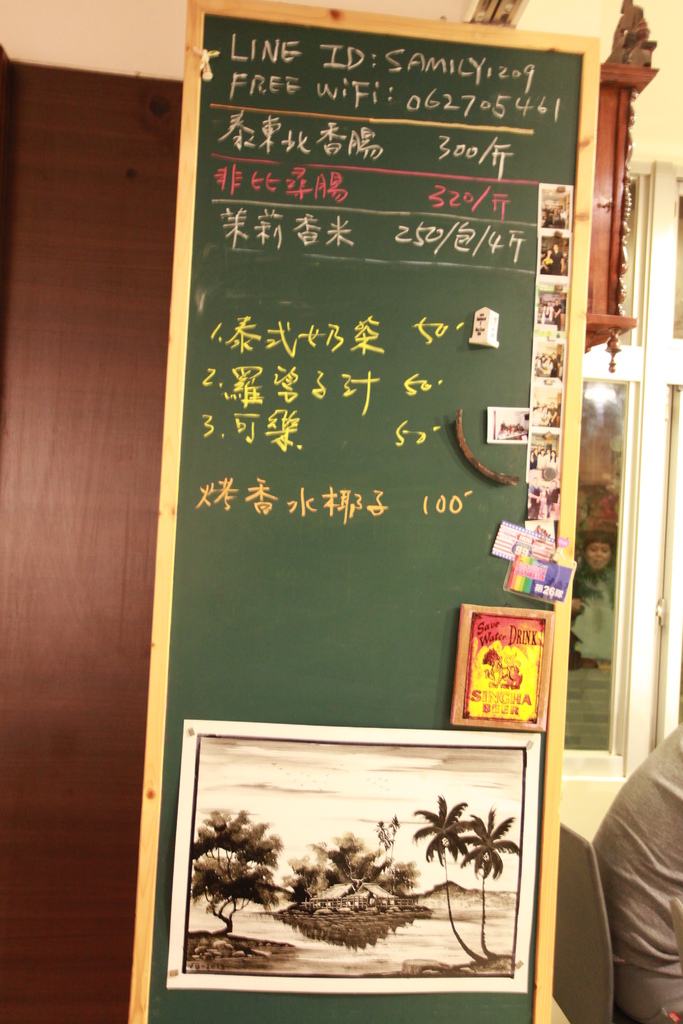 LINE ID: SAMILY1209
FREE WiFi: 062705461
泰東北香腸 300/斤
非比尋腸 320/斤
茉莉香米 250/包/4斤
1.泰式奶茶 50
2.羅望子汁 50
3.可樂 50
烤香水椰子 100
第26隊
Save Water DRINK
SINGHA
BEER